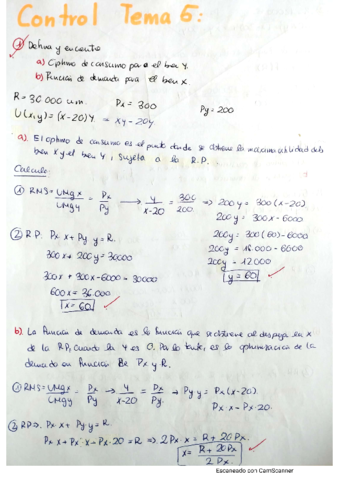 Control Tema 5:
1 Defina y encuentre
a) Optimo de consumo para el bien Y.
b) Función de demanda para el bien X
R = 30000 u.m. Px = 300 Py = 200
U(x,y) = (x-20)Y = xy - 20y
a). El optimo de consumo es el punto donde se obtiene la máxima utilidad del
bien X y el bien Y, sujeta a la R.P.
Calculo:
① RMS = UMgx / UMgy = Px / Py → y / x-20 = 300 / 200 ⇒ 200y = 300(x-20)
200y = 300x - 6000
② R.P. Px x + Py y = R.
200y = 300(60) - 6000
300x + 200y = 30000
200y = 18.000 - 6000
300x + 300x - 6000 = 30000
200y = 12000
600x = 36.000
y = 60
x = 60
b). La función de demanda es la función que se obtiene al despejar x
de la RP, cuando la Y es 0. Por lo tanto, es la optimización de la
demanda en función De Px y R.
① RMS = UMgx / UMgy = Px / Py → y / x-20 = Px / Py → Py y = Px(x-20)
Px·x - Px·20.
② RP ⇒ Px·x + Py·y = R.
Px·x + Px·x - Px·20 = R ⇒ 2Px·x = R + 20Px.
x = R + 20Px / 2Px
Escaneado con CamScanner